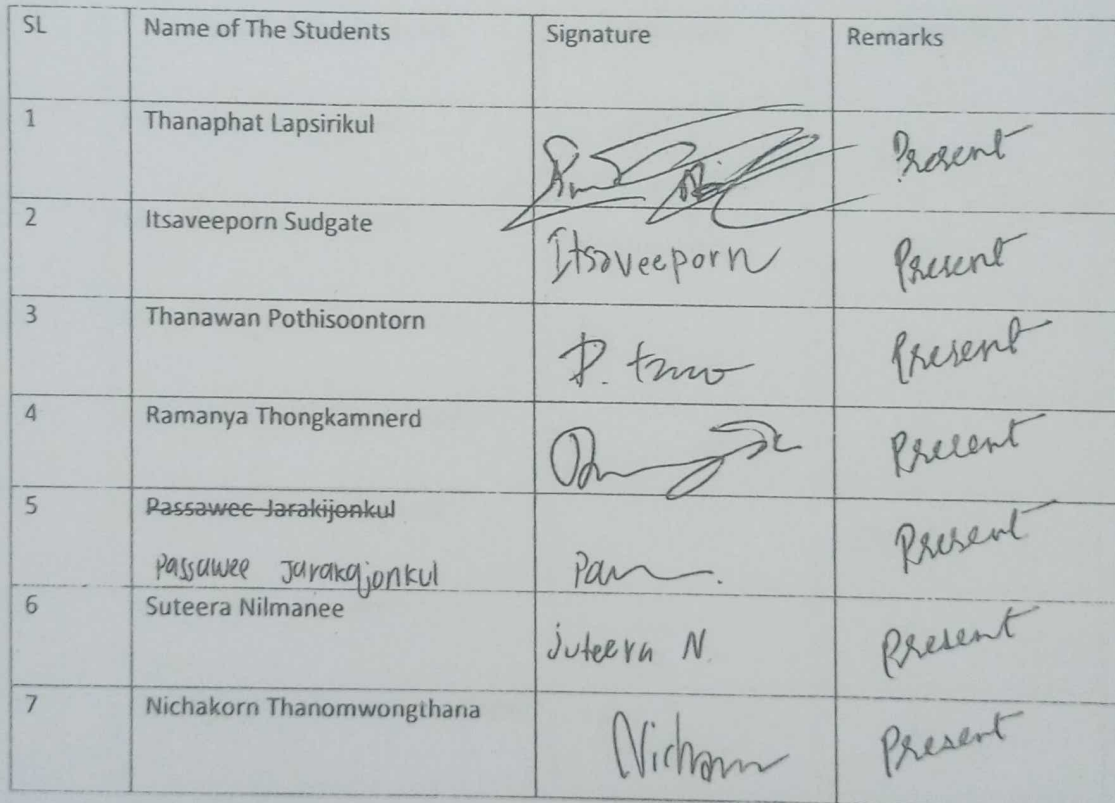 SL Name of The Students Signature Remarks
1 Thanaphat Lapsirikul Present
2 Itsaveeporn Sudgate Itsaveeporn Present
3 Thanawan Pothisoontorn P. Present
4 Ramanya Thongkamnerd Present
5 Passawec Jarakijonkul Present
Passawee Jarakajonkul
6 Suteera Nilmanee Suteera N. Present
7 Nichakorn Thanomwongthana Present